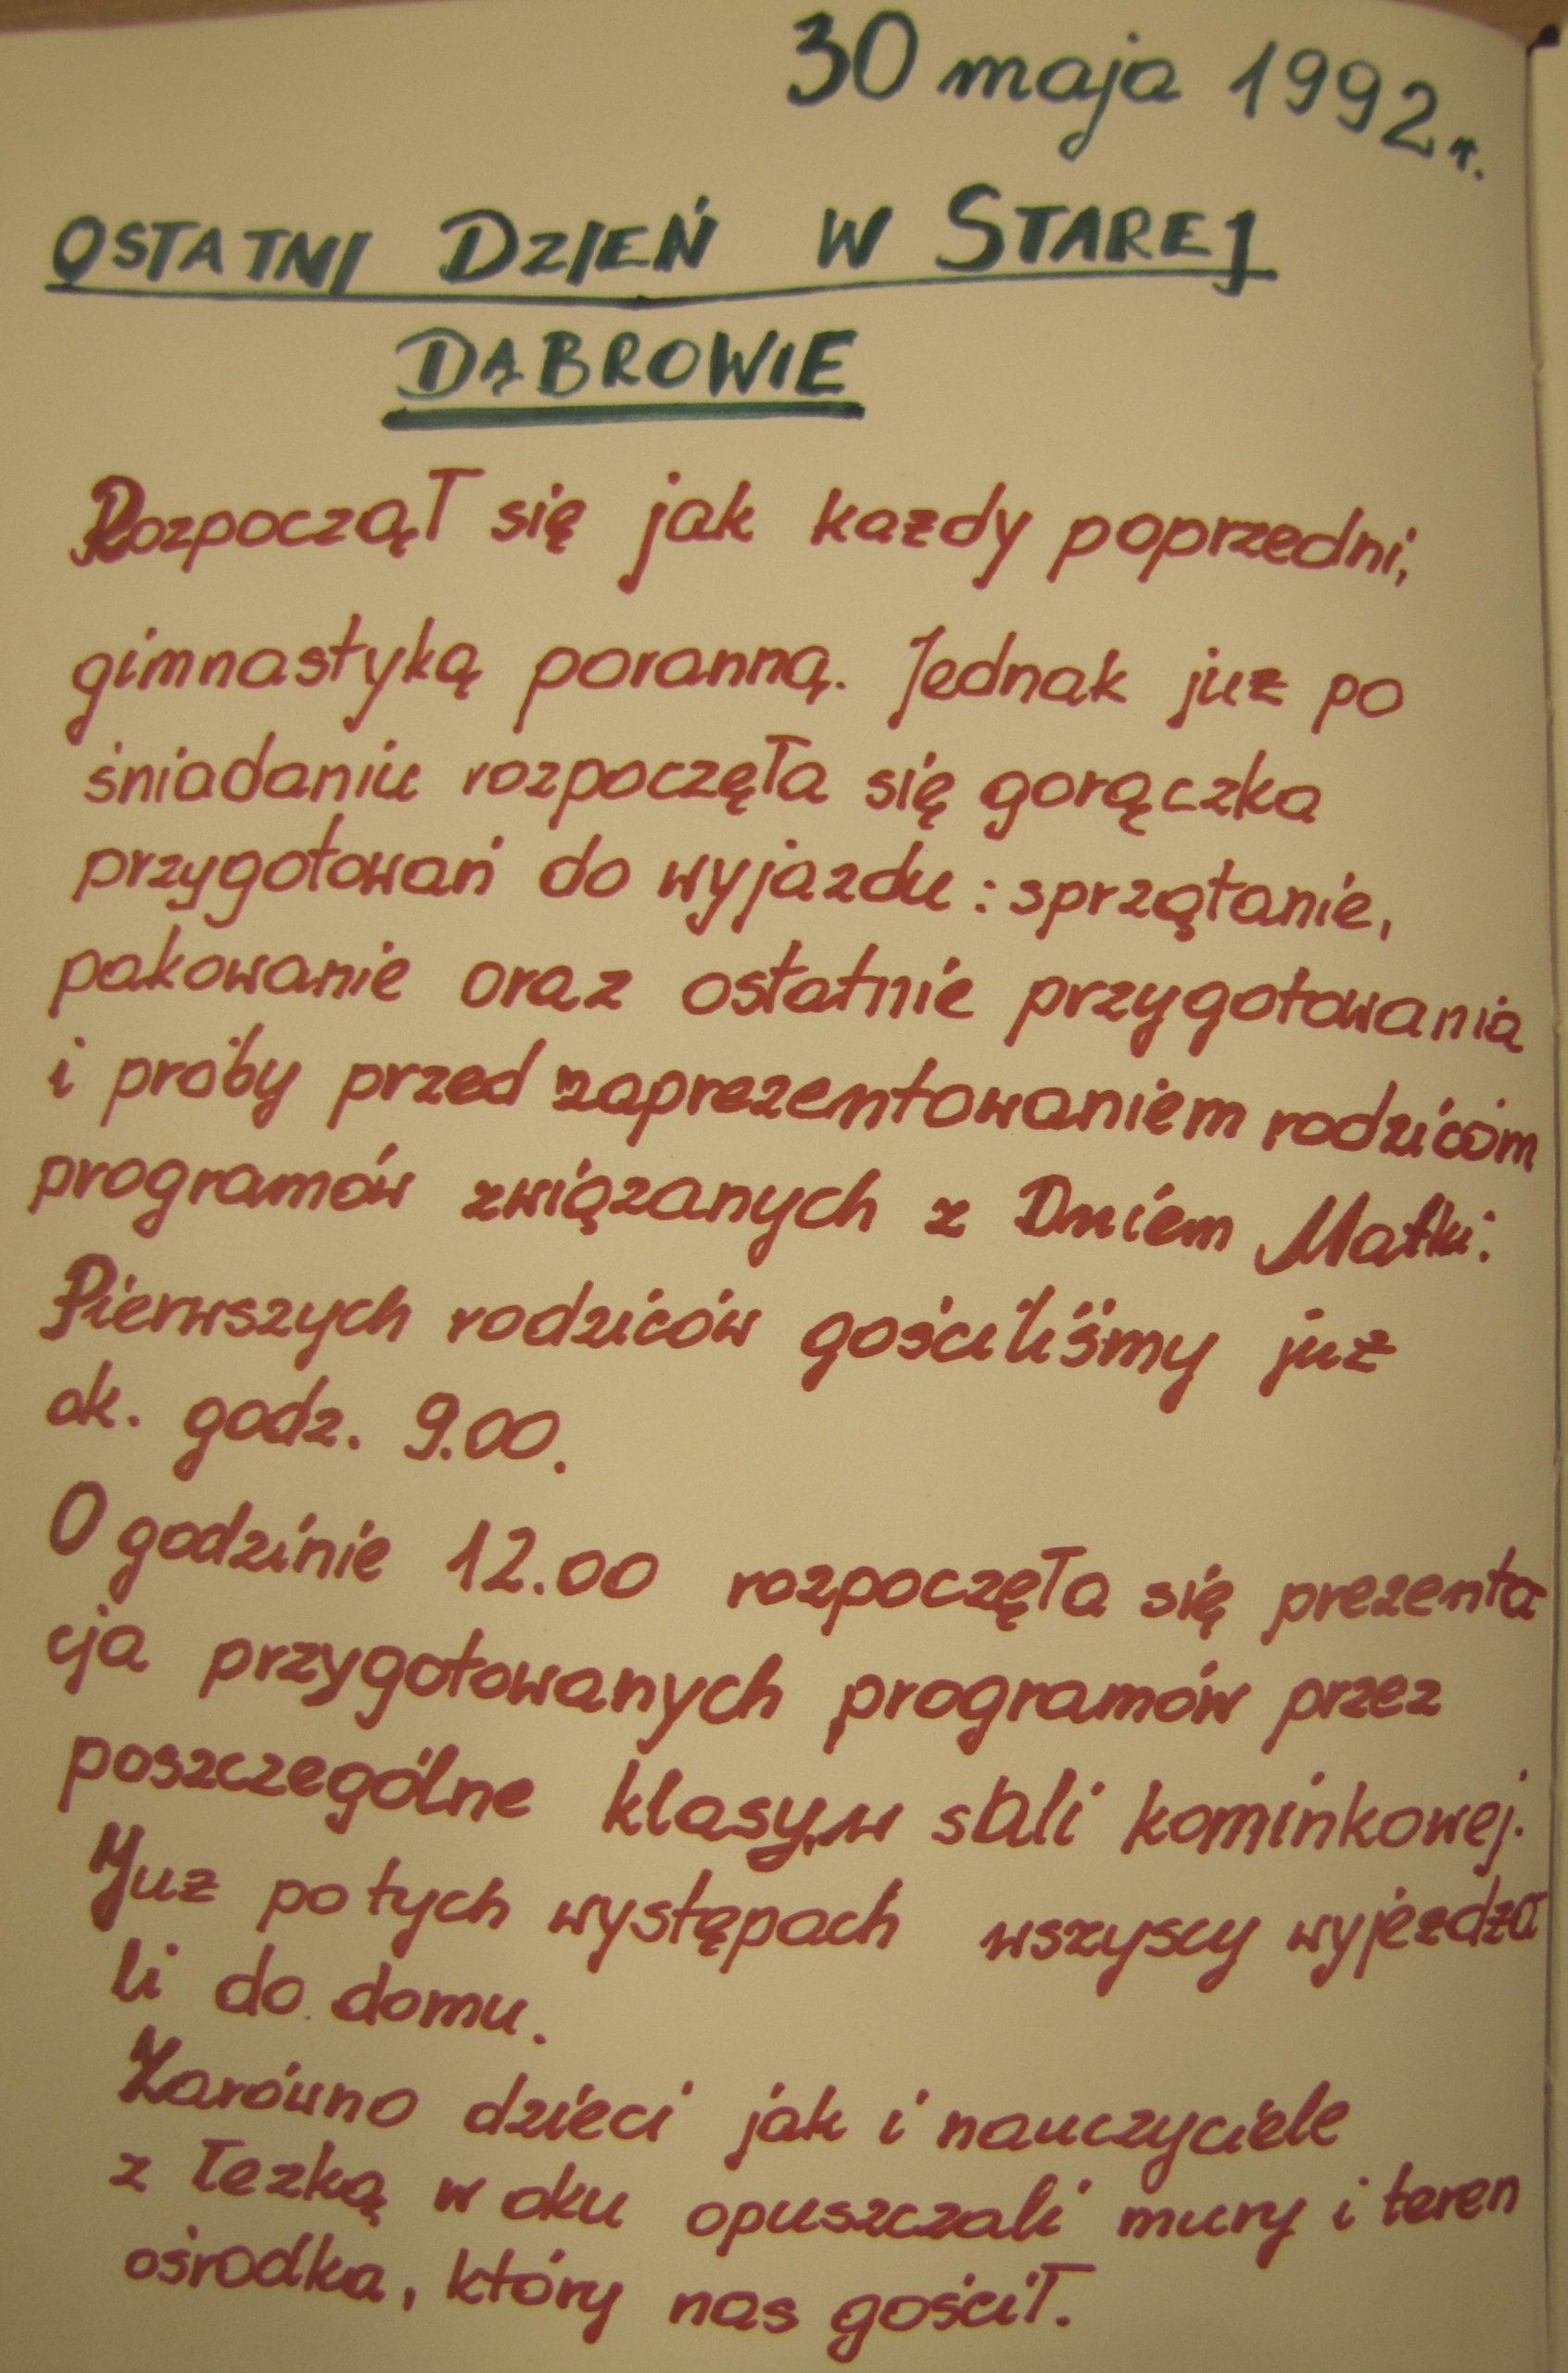 30 maja 1992 r.
OSTATNI DZIEŃ W STAREJ
DĄBROWIE
Rozpoczął się jak każdy poprzedni,
gimnastyką poranną. Jednak już po
śniadaniu rozpoczęła się gorączka
przygotowań do wyjazdu: sprzątanie,
pakowanie oraz ostatnie przygotowania
i próby przed zaprezentowaniem rodzicom
programów związanych z Dniem Matki.
Pierwszych rodziców gościliśmy już
ok. godz. 9.00.
O godzinie 12.00 rozpoczęła się prezenta
cja przygotowanych programów przez
poszczególne klasy, w sali kominkowej.
Już po tych występach wszyscy wyjeżdża
li do domu.
Zarówno dzieci jak i nauczyciele
z łezką w oku opuszczali mury i teren
ośrodka, który nas gościł.